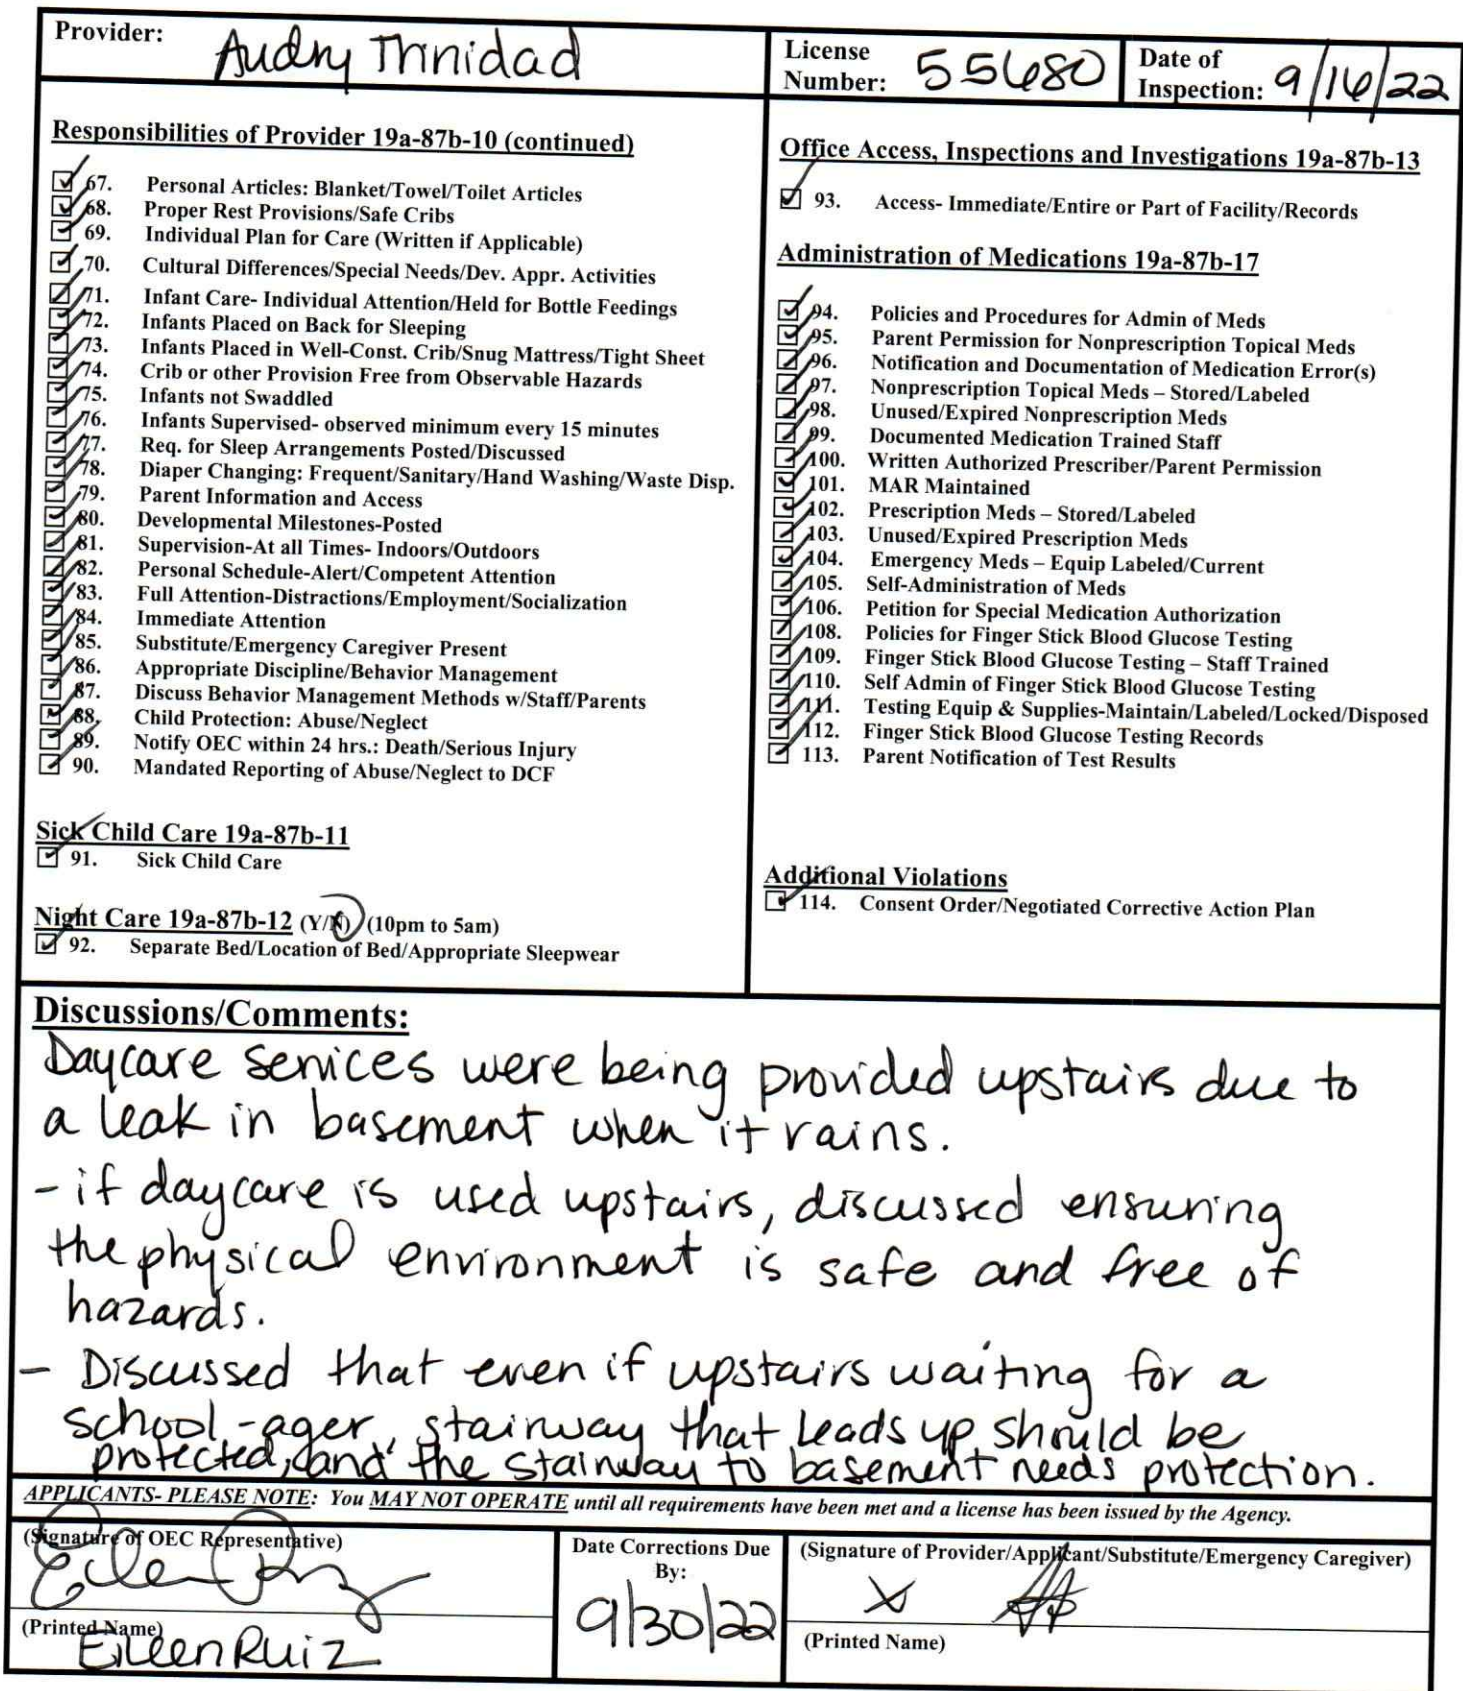 Provider: Audry Trinidad
License Number: 55680
Date of Inspection: 9/16/22
Responsibilities of Provider 19a-87b-10 (continued)
67. Personal Articles: Blanket/Towel/Toilet Articles
68. Proper Rest Provisions/Safe Cribs
69. Individual Plan for Care (Written if Applicable)
70. Cultural Differences/Special Needs/Dev. Appr. Activities
71. Infant Care- Individual Attention/Held for Bottle Feedings
72. Infants Placed on Back for Sleeping
73. Infants Placed in Well-Const. Crib/Snug Mattress/Tight Sheet
74. Crib or other Provision Free from Observable Hazards
75. Infants not Swaddled
76. Infants Supervised- observed minimum every 15 minutes
77. Req. for Sleep Arrangements Posted/Discussed
78. Diaper Changing: Frequent/Sanitary/Hand Washing/Waste Disp.
79. Parent Information and Access
80. Developmental Milestones-Posted
81. Supervision-At all Times- Indoors/Outdoors
82. Personal Schedule-Alert/Competent Attention
83. Full Attention-Distractions/Employment/Socialization
84. Immediate Attention
85. Substitute/Emergency Caregiver Present
86. Appropriate Discipline/Behavior Management
87. Discuss Behavior Management Methods w/Staff/Parents
88. Child Protection: Abuse/Neglect
89. Notify OEC within 24 hrs.: Death/Serious Injury
90. Mandated Reporting of Abuse/Neglect to DCF
Sick Child Care 19a-87b-11
91. Sick Child Care
Night Care 19a-87b-12 (Y/N) (10pm to 5am)
92. Separate Bed/Location of Bed/Appropriate Sleepwear
Office Access, Inspections and Investigations 19a-87b-13
93. Access- Immediate/Entire or Part of Facility/Records
Administration of Medications 19a-87b-17
94. Policies and Procedures for Admin of Meds
95. Parent Permission for Nonprescription Topical Meds
96. Notification and Documentation of Medication Error(s)
97. Nonprescription Topical Meds – Stored/Labeled
98. Unused/Expired Nonprescription Meds
99. Documented Medication Trained Staff
100. Written Authorized Prescriber/Parent Permission
101. MAR Maintained
102. Prescription Meds – Stored/Labeled
103. Unused/Expired Prescription Meds
104. Emergency Meds – Equip Labeled/Current
105. Self-Administration of Meds
106. Petition for Special Medication Authorization
108. Policies for Finger Stick Blood Glucose Testing
109. Finger Stick Blood Glucose Testing – Staff Trained
110. Self Admin of Finger Stick Blood Glucose Testing
111. Testing Equip & Supplies-Maintain/Labeled/Locked/Disposed
112. Finger Stick Blood Glucose Testing Records
113. Parent Notification of Test Results
Additional Violations
114. Consent Order/Negotiated Corrective Action Plan
Discussions/Comments:
Daycare services were being provided upstairs due to
a leak in basement when it rains.
- if daycare is used upstairs, discussed ensuring
the physical environment is safe and free of
hazards.
- Discussed that even if upstairs waiting for a
school-ager, stairway that leads up should be
protected, and the stairway to basement needs protection.
APPLICANTS- PLEASE NOTE: You MAY NOT OPERATE until all requirements have been met and a license has been issued by the Agency.
(Signature of OEC Representative)
(Printed Name)
Eileen Ruiz
Date Corrections Due By:
9/30/22
(Signature of Provider/Applicant/Substitute/Emergency Caregiver)
X
(Printed Name)